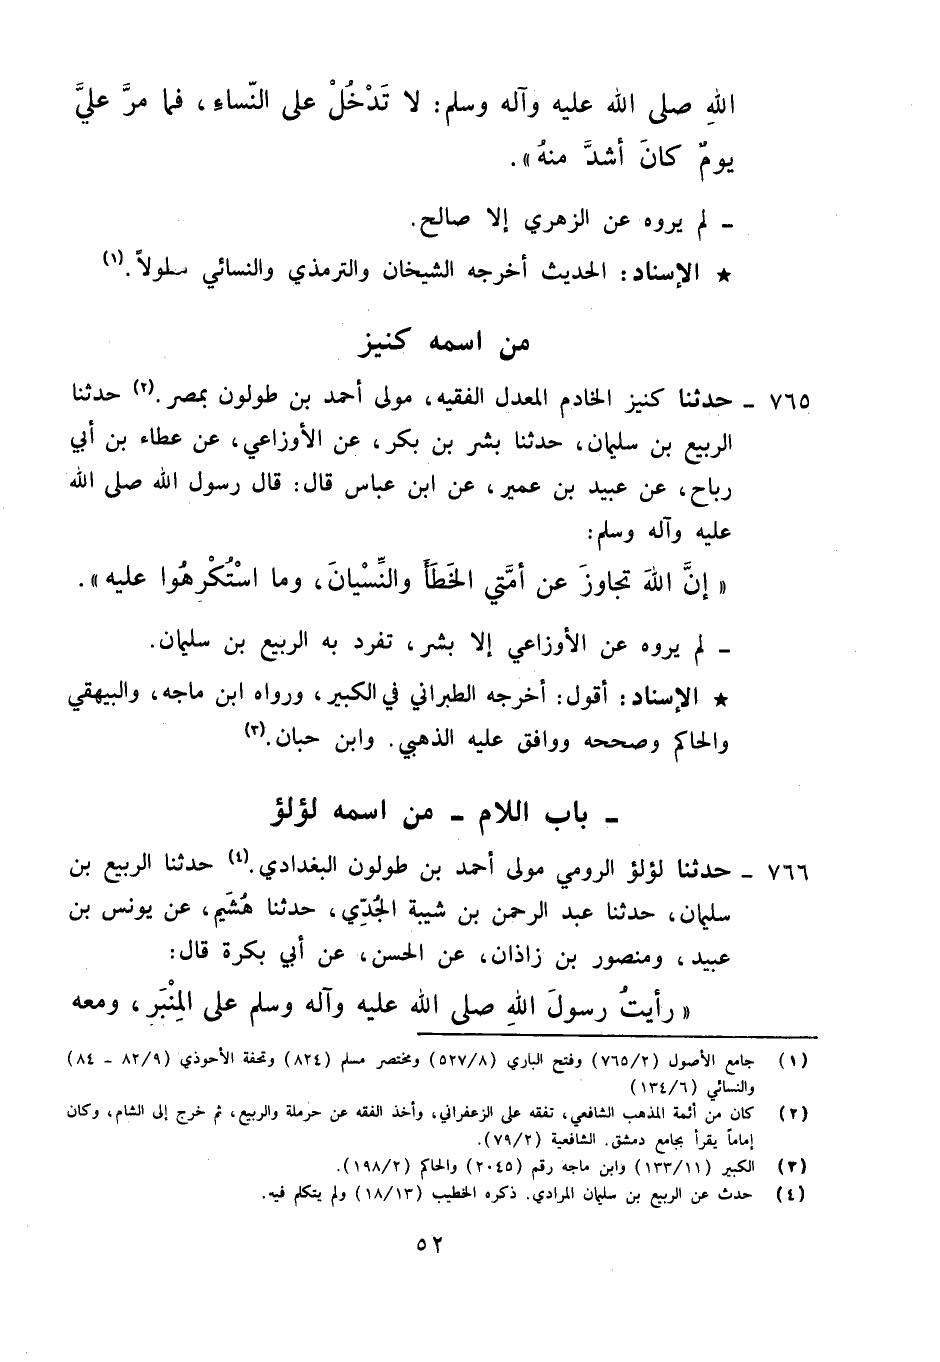 اللهِ صلى الله عليه وآله وسلم: لا تَدْخُلْ على النّساءِ، فما مرَّ عليَّ
يومٌ كانَ أشدَّ منهُ».
ـ لم يروه عن الزهري إلا صالح.
★ الإسناد: الحديث أخرجه الشيخان والترمذي والنسائي مطولاً.(١)
من اسمه كنيز
٧٦٥ ـ حدثنا كنيز الخادم المعدل الفقيه، مولى أحمد بن طولون بمصر.(٢) حدثنا
الربيع بن سليمان، حدثنا بشر بن بكر، عن الأوزاعي، عن عطاء بن أبي
رباح، عن عبيد بن عمير، عن ابن عباس قال: قال رسول الله صلى الله
عليه وآله وسلم:
«إنَّ اللهَ تجاوزَ عن أمَّتي الخَطَأَ والنِّسْيانَ، وما اسْتُكْرِهُوا عليه».
ـ لم يروه عن الأوزاعي إلا بشر، تفرد به الربيع بن سليمان.
★ الإسناد: أقول: أخرجه الطبراني في الكبير، ورواه ابن ماجه، والبيهقي
والحاكم وصححه ووافق عليه الذهبي. وابن حبان.(٣)
ـ باب اللام ـ من اسمه لؤلؤ
٧٦٦ ـ حدثنا لؤلؤ الرومي مولى أحمد بن طولون البغدادي.(٤) حدثنا الربيع بن
سليمان، حدثنا عبد الرحمن بن شيبة الجُدِّي، حدثنا هُشَيم، عن يونس بن
عبيد، ومنصور بن زاذان، عن الحسن، عن أبي بكرة قال:
«رأيتُ رسولَ اللهِ صلى الله عليه وآله وسلم على المِنْبَرِ، ومعه
(١) جامع الأصول (٧٦٥/٢) وفتح الباري (٥٢٧/٨) ومختصر مسلم (٨٢٤) وتحفة الأحوذي (٨٢/٩ ـ ٨٤)
والنسائي (١٣٤/٦)
(٢) كان من أئمة المذهب الشافعي، تفقه على الزعفراني، وأخذ الفقه عن حرملة والربيع، ثم خرج إلى الشام، وكان
إماماً يقرأ بجامع دمشق. الشافعية (٧٩/٢).
(٣) الكبير (١٣٣/١١) وابن ماجه رقم (٢٠٤٥) والحاكم (١٩٨/٢).
(٤) حدث عن الربيع بن سليمان المرادي. ذكره الخطيب (١٨/١٣) ولم يتكلم فيه.
٥٢